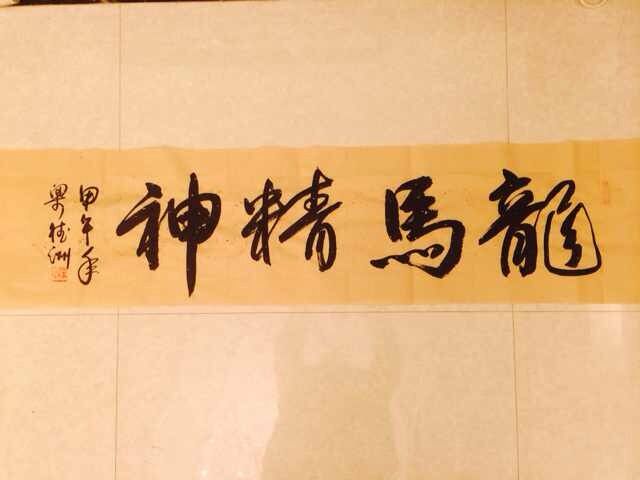 龍馬精神
甲午年
梁桂洲